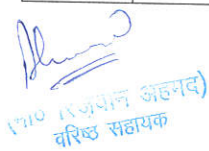 (मो० रिज़वान अहमद)
वरिष्ठ सहायक